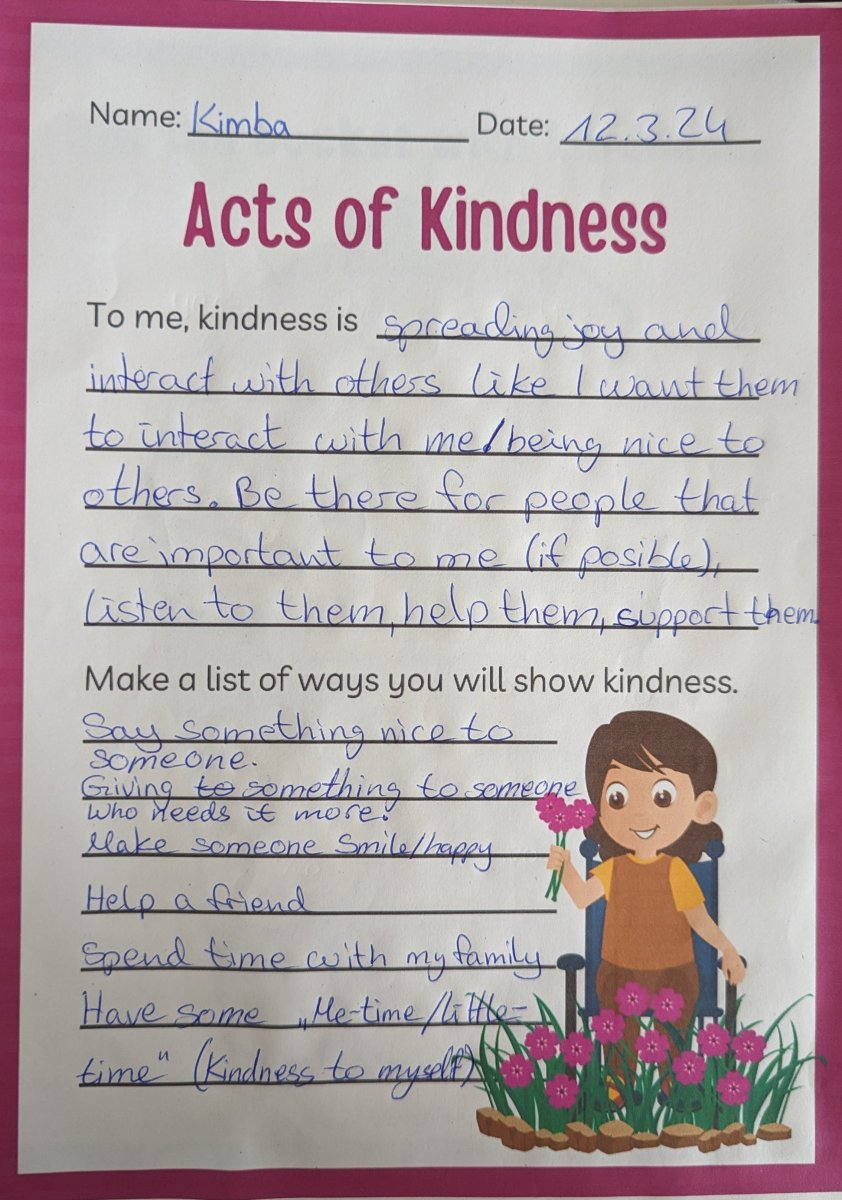 Name: Kimba Date: 12.3.24
Acts of Kindness
To me, kindness is spreading joy and
interact with others like I want them
to interact with me/being nice to
others. Be there for people that
are important to me (if posible),
listen to them, help them, support them.
Make a list of ways you will show kindness.
Say something nice to
someone.
Giving to something to someone
who needs it more.
Make someone Smile/happy
Help a friend
Spend time with my family
Have some „Me-time/little-
time" (Kindness to myself)